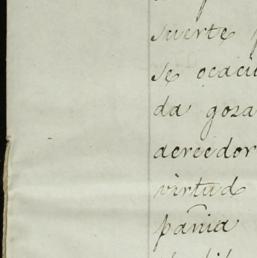 suerte
se ocaci
da goza
acreedor
virtud
pañia